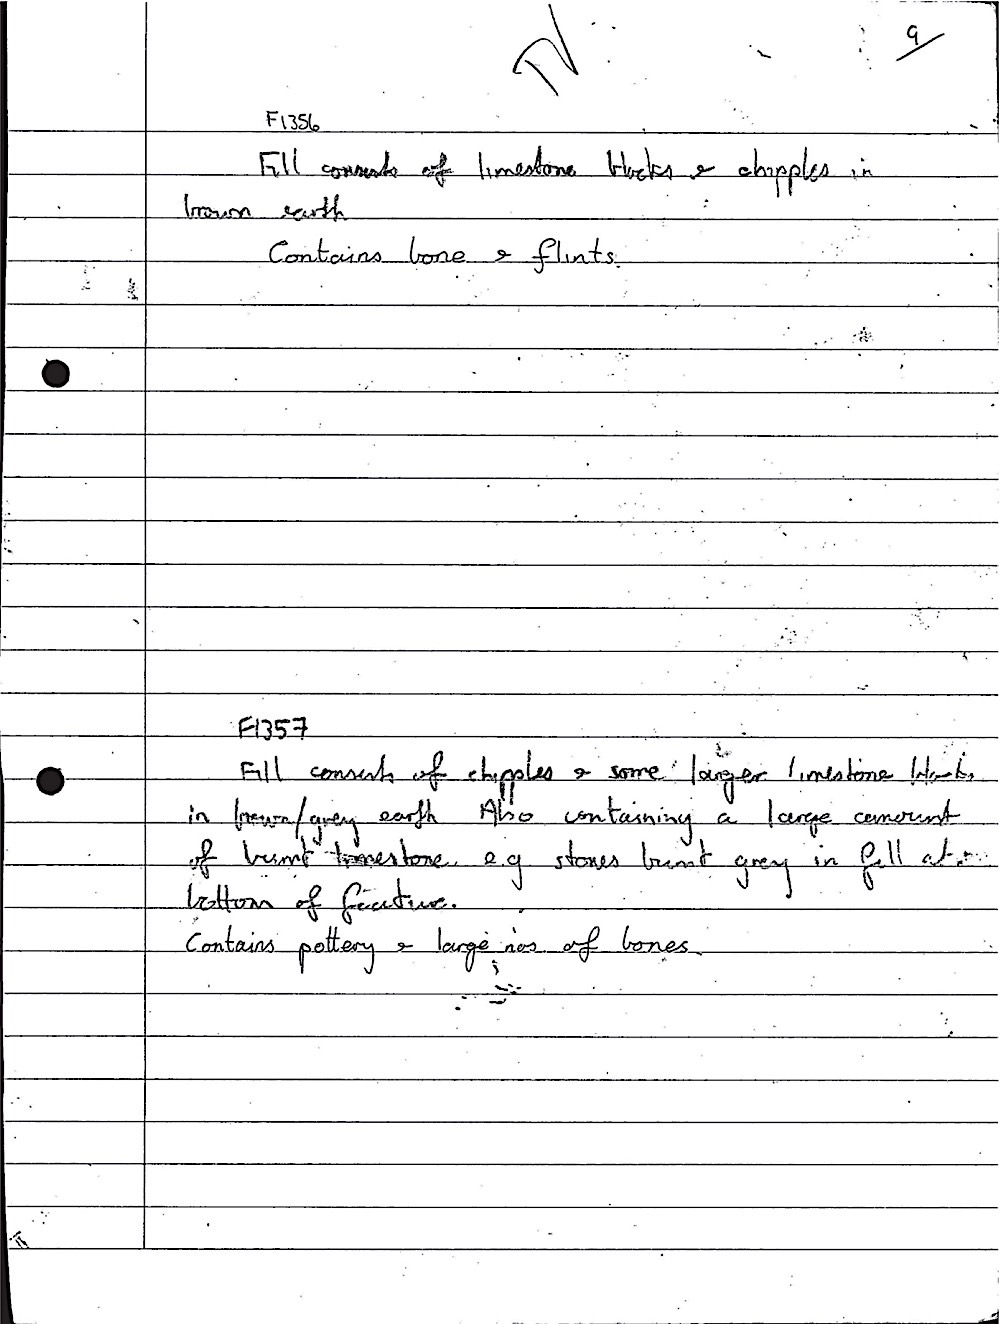 9
F1356
Fill consists of limestone blocks & chipples in
brown earth
Contains bone & flints.
F1357
Fill consists of chipples & some larger limestone blocks
in brown/grey earth Also containing a large amount
of burnt limestone e.g stones burnt grey in fill at
bottom of feature.
Contains pottery & large nos of bones